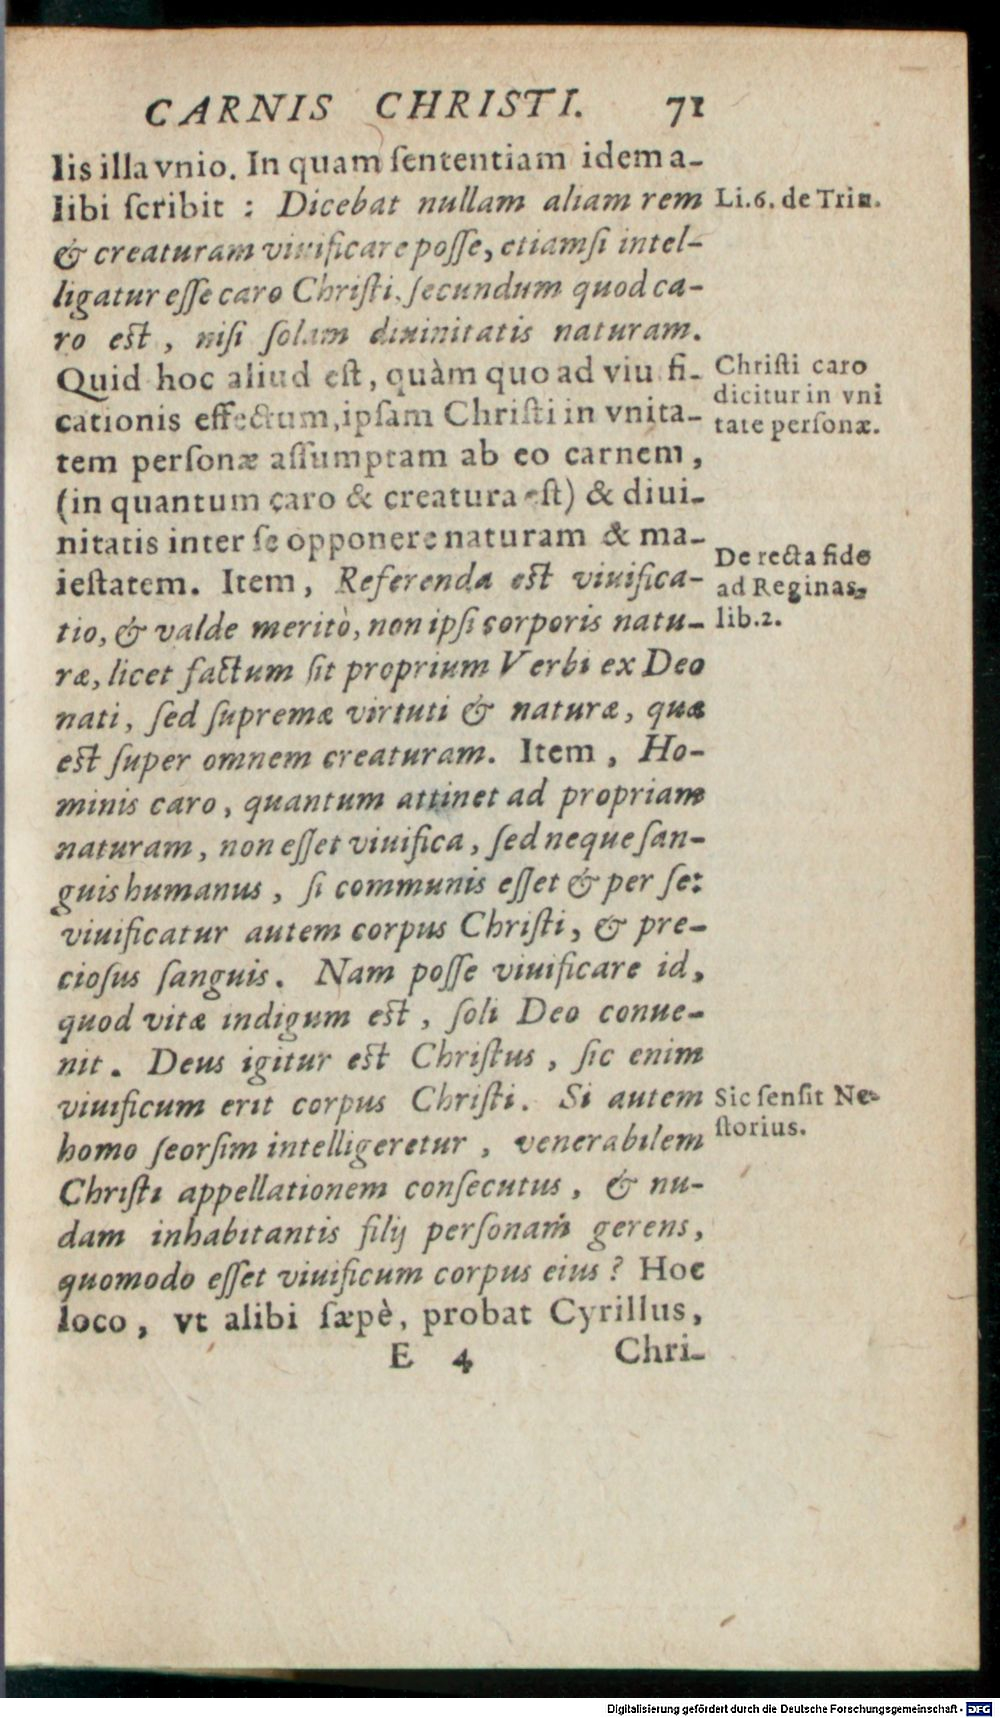 CARNIS CHRISTI. 71
lis illa vnio. In quam ſententiam idem a-
libi ſcribit : Dicebat nullam aliam rem
& creaturam viuificare poſſe, etiamſi intel-
ligatur eſſe caro Chriſti, ſecundum quod ca-
ro eſt, niſi ſolam diuinitatis naturam.
Quid hoc aliud eſt, quàm quo ad viuifi-
cationis effectum, ipſam Chriſti in vnita-
tem perſonæ aſſumptam ab eo carnem,
(in quantum caro & creatura eſt) & diui-
nitatis inter ſe opponere naturam & ma-
ieſtatem. Item, Referenda eſt viuifica-
tio, & valde meritò, non ipſi corporis natu-
ræ, licet factum ſit proprium Verbi ex Deo
nati, ſed ſupremæ virtuti & naturæ, quæ
eſt ſuper omnem creaturam. Item, Ho-
minis caro, quantum attinet ad propriam
naturam, non eſſet viuifica, ſed neque ſan-
guis humanus, ſi communis eſſet & per ſe:
viuificatur autem corpus Chriſti, & pre-
cioſus ſanguis. Nam poſſe viuificare id,
quod vitæ indigum eſt, ſoli Deo conue-
nit. Deus igitur eſt Chriſtus, ſic enim
viuificum erit corpus Chriſti. Si autem
homo ſeorſim intelligeretur, venerabilem
Chriſti appellationem conſecutus, & nu-
dam inhabitantis filij perſonam gerens,
quomodo eſſet viuificum corpus eius? Hoc
loco, vt alibi ſæpè, probat Cyrillus,
E 4 Chri-
Li. 6. de Trin.
Chriſti caro
dicitur in vni
tate perſonæ.
De recta fide
ad Reginas,
lib. 2.
Sic ſenſit Ne-
ſtorius.
Digitalisierung gefördert durch die Deutsche Forschungsgemeinschaft - DFG